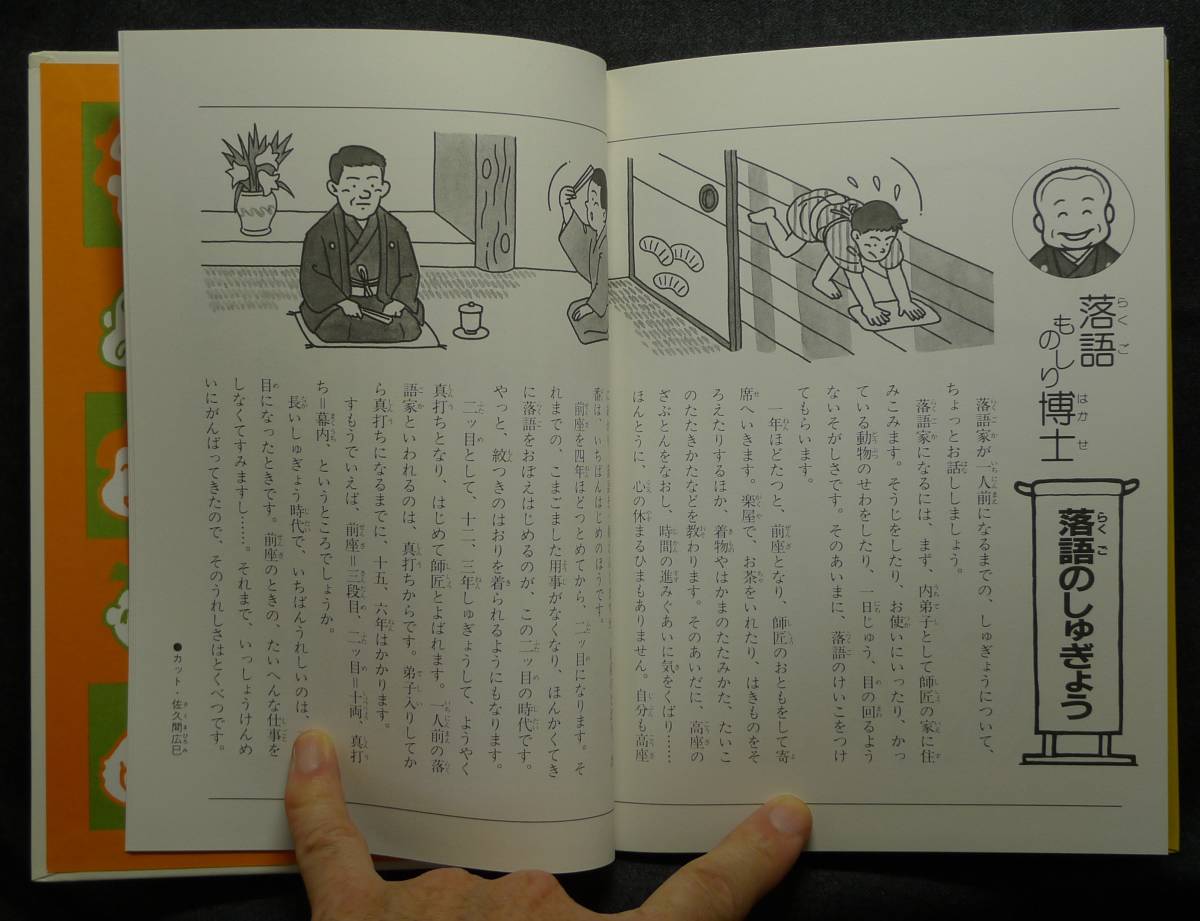 落語
もの
しり
博士
落語のしゅぎょう
落語家が一人前になるまでの、しゅぎょうについて、
ちょっとお話ししましょう。
落語家になるには、まず、内弟子として師匠の家に住
みこみます。そうじをしたり、お使いにいったり、かっ
ている動物のせわをしたり、一日じゅう、目の回るよう
ないそがしさです。そのあいまに、落語のけいこをつけ
てもらいます。
一年ほどたつと、前座となり、師匠のおともをして寄
席へいきます。楽屋で、お茶をいれたり、はきものをそ
ろえたりするほか、着物やはかまのたたみかた、たいこ
のたたきかたなどを教わります。そのあいだに、高座の
ざぶとんをなおし、時間の進みぐあいに気をくばり……
ほんとうに、心の休まるひまもありません。自分も高座
番は、いちばんはじめのほうです。
前座を四年ほどつとめてから、二ッ目になります。そ
れまでの、こまごました用事がなくなり、ほんかくてき
に落語をおぼえはじめるのが、この二ッ目の時代です。
やっと、紋つきのはおりを着られるようにもなります。
二ッ目として、十二、三年しゅぎょうして、ようやく
真打ちとなり、はじめて師匠とよばれます。一人前の落
語家といわれるのは、真打ちからです。弟子入りしてか
ら真打ちになるまでに、十五、六年はかかります。
すもうでいえば、前座=三段目、二ッ目=十両、真打
ち=幕内、というところでしょうか。
長いしゅぎょう時代で、いちばんうれしいのは、
目になったときです。前座のときの、たいへんな仕事を
しなくてすみますし……。それまで、いっしょうけんめ
いにがんばってきたので、そのうれしさはとくべつです。
●カット・佐久間広巳